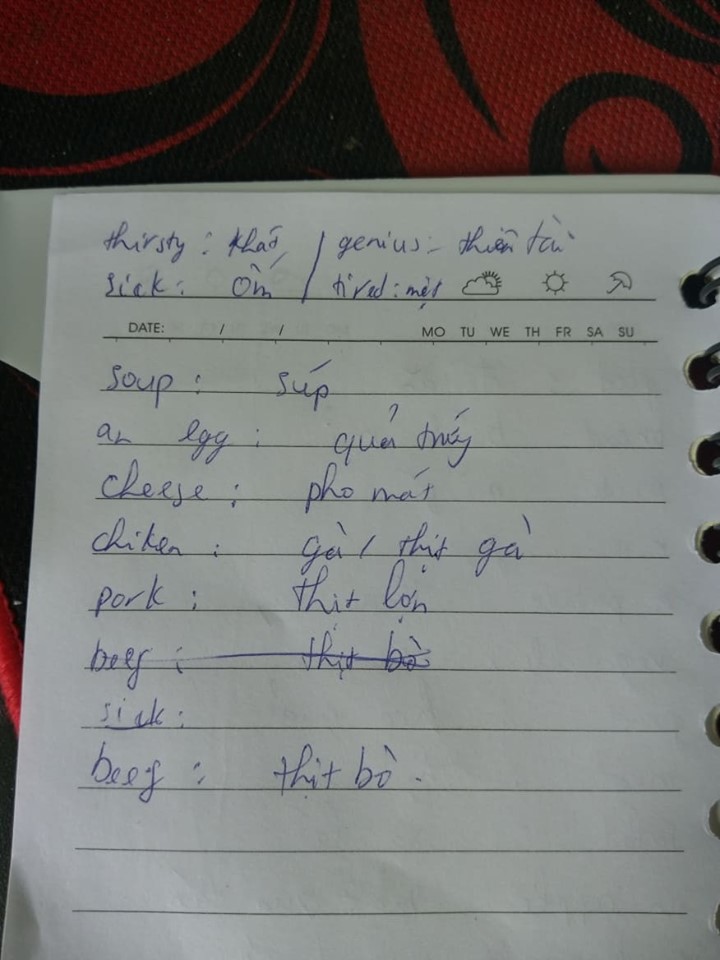 thirsty : khát / genius : thiên tài
sick : ốm / tired : mệt
DATE: / / MO TU WE TH FR SA SU
soup : súp
an egg : quả trứng
cheese : pho mát
chiken : gà / thịt gà
pork : thịt lợn
beef : thịt bò
sick :
beef : thịt bò .